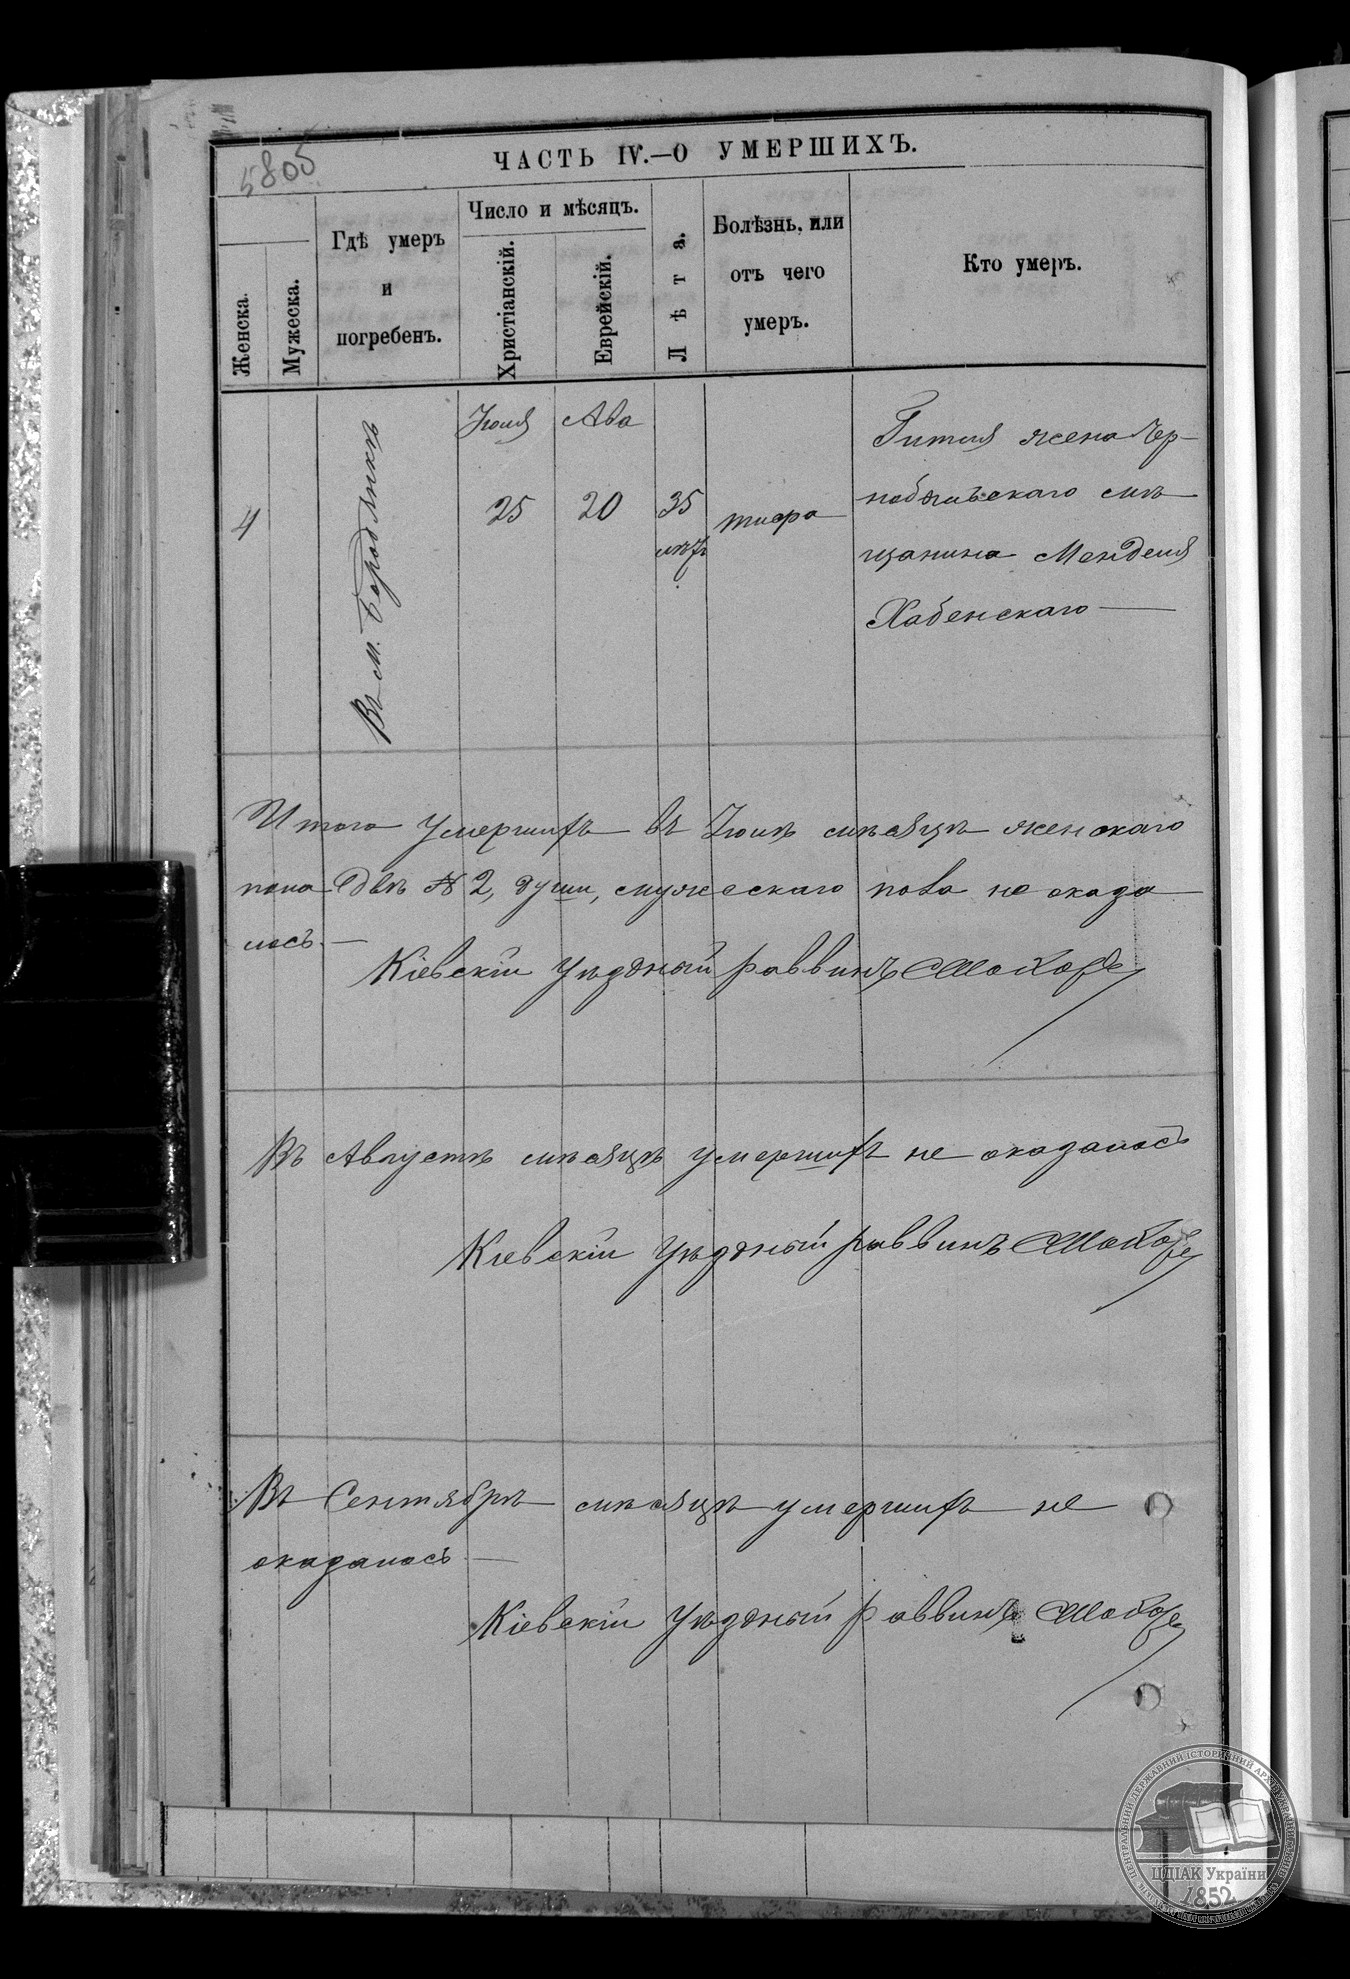 5805
ЧАСТЬ IV.—О УМЕРШИХЪ.
Женска.
Мужеска.
Гдѣ умеръ
и
погребенъ.
Число и мѣсяцъ.
Христіанскій.
Еврейскій.
Лѣта.
Болѣзнь, или
отъ чего
умеръ.
Кто умеръ.
4
Въ м. Бородянкѣ
Іюля
25
Ава
20
35
лѣтъ
тифа
Гитля жена Чер-
нобыльскаго мѣ
щанина Менделя
Хабенскаго —
Итого умершихъ въ Іюлѣ мѣсяцѣ женскаго
пола двѣ № 2, души, мужескаго пола не оказа
лось. —
Кіевскій Уѣздный раввинъ
Въ Августѣ мѣсяцѣ умершихъ не оказалось
Кіевскій Уѣздный раввинъ
Въ Сентябрѣ мѣсяцѣ умершихъ не
оказалось —
Кіевскій Уѣздный раввинъ
ЦЕНТРАЛЬНИЙ ДЕРЖАВНИЙ ІСТОРИЧНИЙ АРХІВ УКРАЇНИ
ЦДІАК України
1852